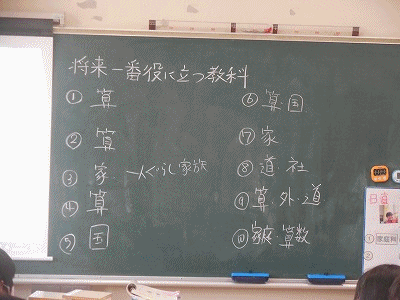 将来一番役に立つ教科
① 算
② 算
③ 家 一人ぐらし 家族
④ 算
⑤ 国
⑥ 算国
⑦ 家
⑧ 道 社
⑨ 算・外・道
⑩ 家庭・算数
日直
①
②